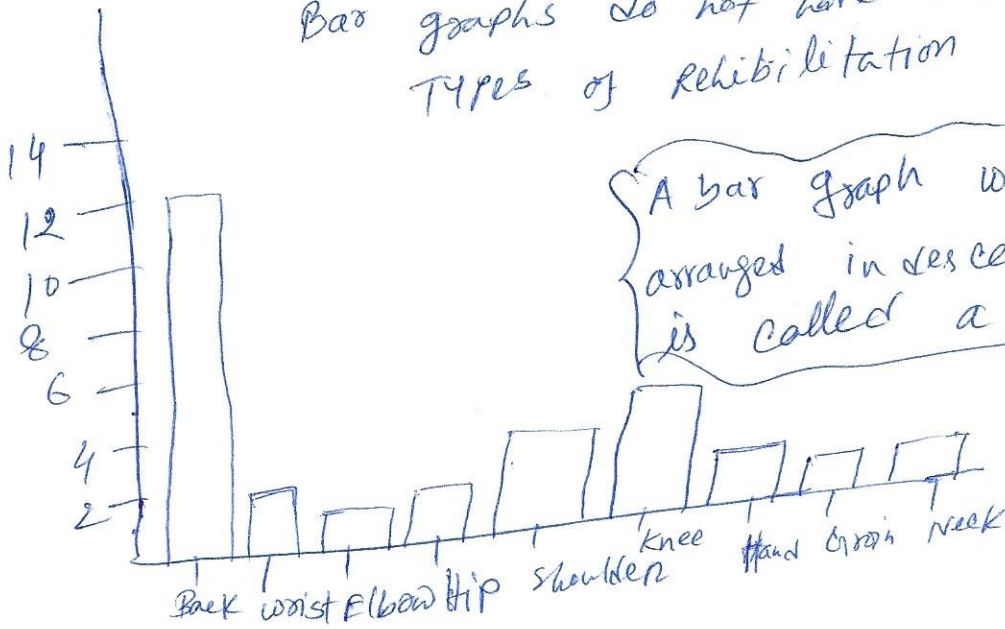 Bar graphs do not have
TYPES of Rehibilitation
A bar graph w
arranged in desce
is called a
14
12
10
8
6
4
2
Back wrist Elbow Hip Shoulder Knee Hand Groin Neck